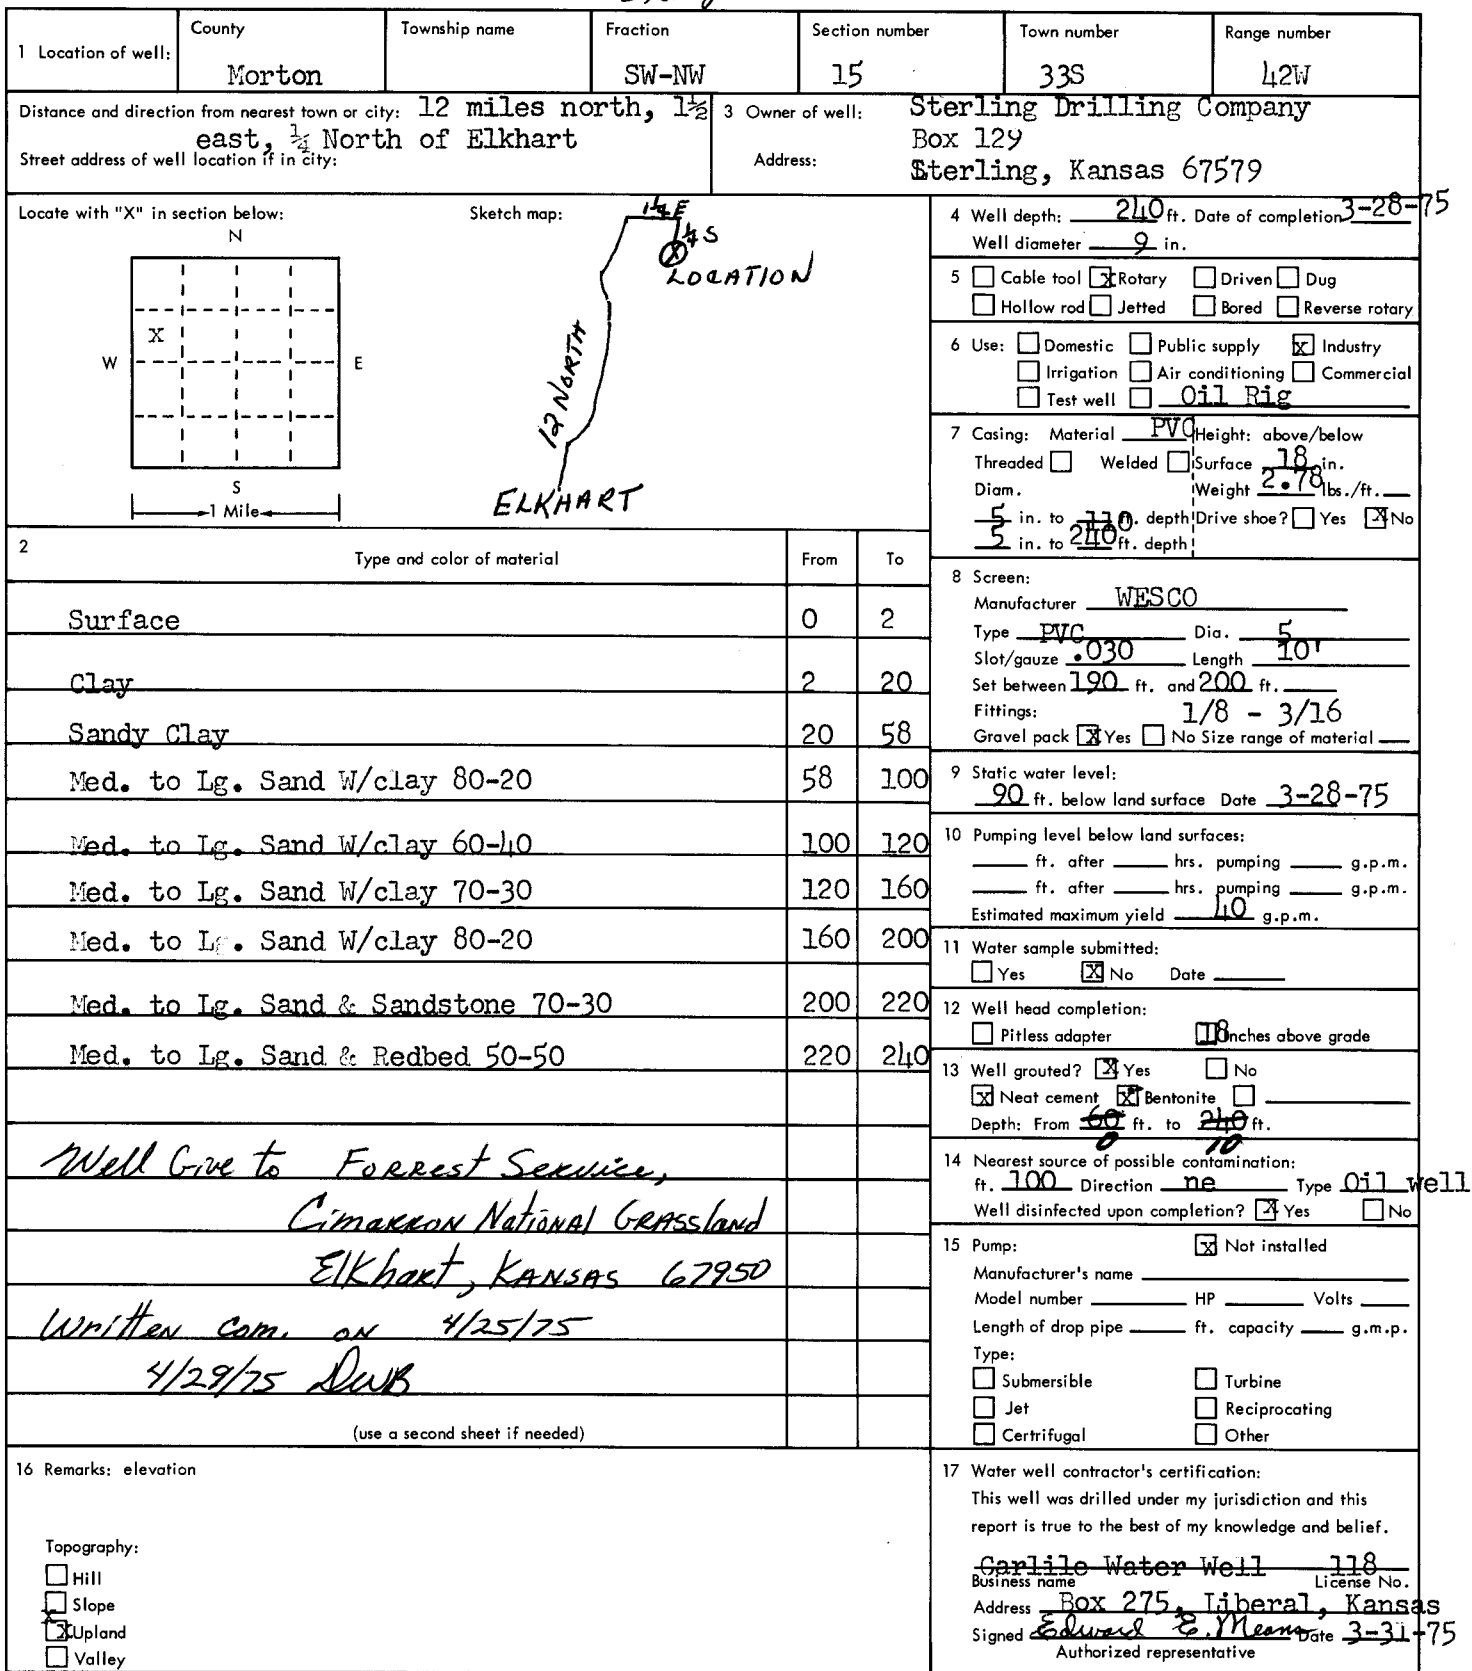 County Township name Fraction Section number Town number Range number
1 Location of well: Morton SW-NW 15 33S 42W
Distance and direction from nearest town or city: 12 miles north, 1½
east, ¼ North of Elkhart
Street address of well location if in city:
3 Owner of well: Sterling Drilling Company
Box 129
Address: Sterling, Kansas 67579
Locate with "X" in section below:
N
X
W E
S
1 Mile
Sketch map:
1¼ E
¼ S
X
LOCATION
12 NORTH
ELKHART
2 Type and color of material From To
Surface 0 2
Clay 2 20
Sandy Clay 20 58
Med. to Lg. Sand W/clay 80-20 58 100
Med. to Lg. Sand W/clay 60-40 100 120
Med. to Lg. Sand W/clay 70-30 120 160
Med. to Lg. Sand W/clay 80-20 160 200
Med. to Lg. Sand & Sandstone 70-30 200 220
Med. to Lg. Sand & Redbed 50-50 220 240
Well Give to Forrest Service,
Cimarron National Grassland
Elkhart, Kansas 67950
Written com. on 4/25/75
4/29/75 DWB
(use a second sheet if needed)
4 Well depth: 240 ft. Date of completion 3-28-75
Well diameter 9 in.
5 Cable tool X Rotary Driven Dug
Hollow rod Jetted Bored Reverse rotary
6 Use: Domestic Public supply X Industry
Irrigation Air conditioning Commercial
Test well Oil Rig
7 Casing: Material PVC Height: above/below
Threaded Welded Surface 18 in.
Diam. Weight 2.78 lbs./ft.
5 in. to ft. depth Drive shoe? Yes X No
5 in. to 240 ft. depth
8 Screen:
Manufacturer WESCO
Type PVC Dia. 5
Slot/gauze .030 Length 10'
Set between 190 ft. and 200 ft.
Fittings: 1/8 - 3/16
Gravel pack X Yes No Size range of material
9 Static water level:
90 ft. below land surface Date 3-28-75
10 Pumping level below land surfaces:
ft. after hrs. pumping g.p.m.
ft. after hrs. pumping g.p.m.
Estimated maximum yield 40 g.p.m.
11 Water sample submitted:
Yes X No Date
12 Well head completion:
Pitless adapter 18 Inches above grade
13 Well grouted? X Yes No
X Neat cement X Bentonite
Depth: From 60 ft. to 240 ft.
0 10
14 Nearest source of possible contamination:
ft. 100 Direction ne Type Oil well
Well disinfected upon completion? X Yes No
15 Pump: X Not installed
Manufacturer's name
Model number HP Volts
Length of drop pipe ft. capacity g.m.p.
Type:
Submersible Turbine
Jet Reciprocating
Certrifugal Other
16 Remarks: elevation
Topography:
Hill
Slope
X Upland
Valley
17 Water well contractor's certification:
This well was drilled under my jurisdiction and this
report is true to the best of my knowledge and belief.
Carlile Water Well 118
Business name License No.
Address Box 275, Liberal, Kansas
Signed Edward E. Means Date 3-31-75
Authorized representative